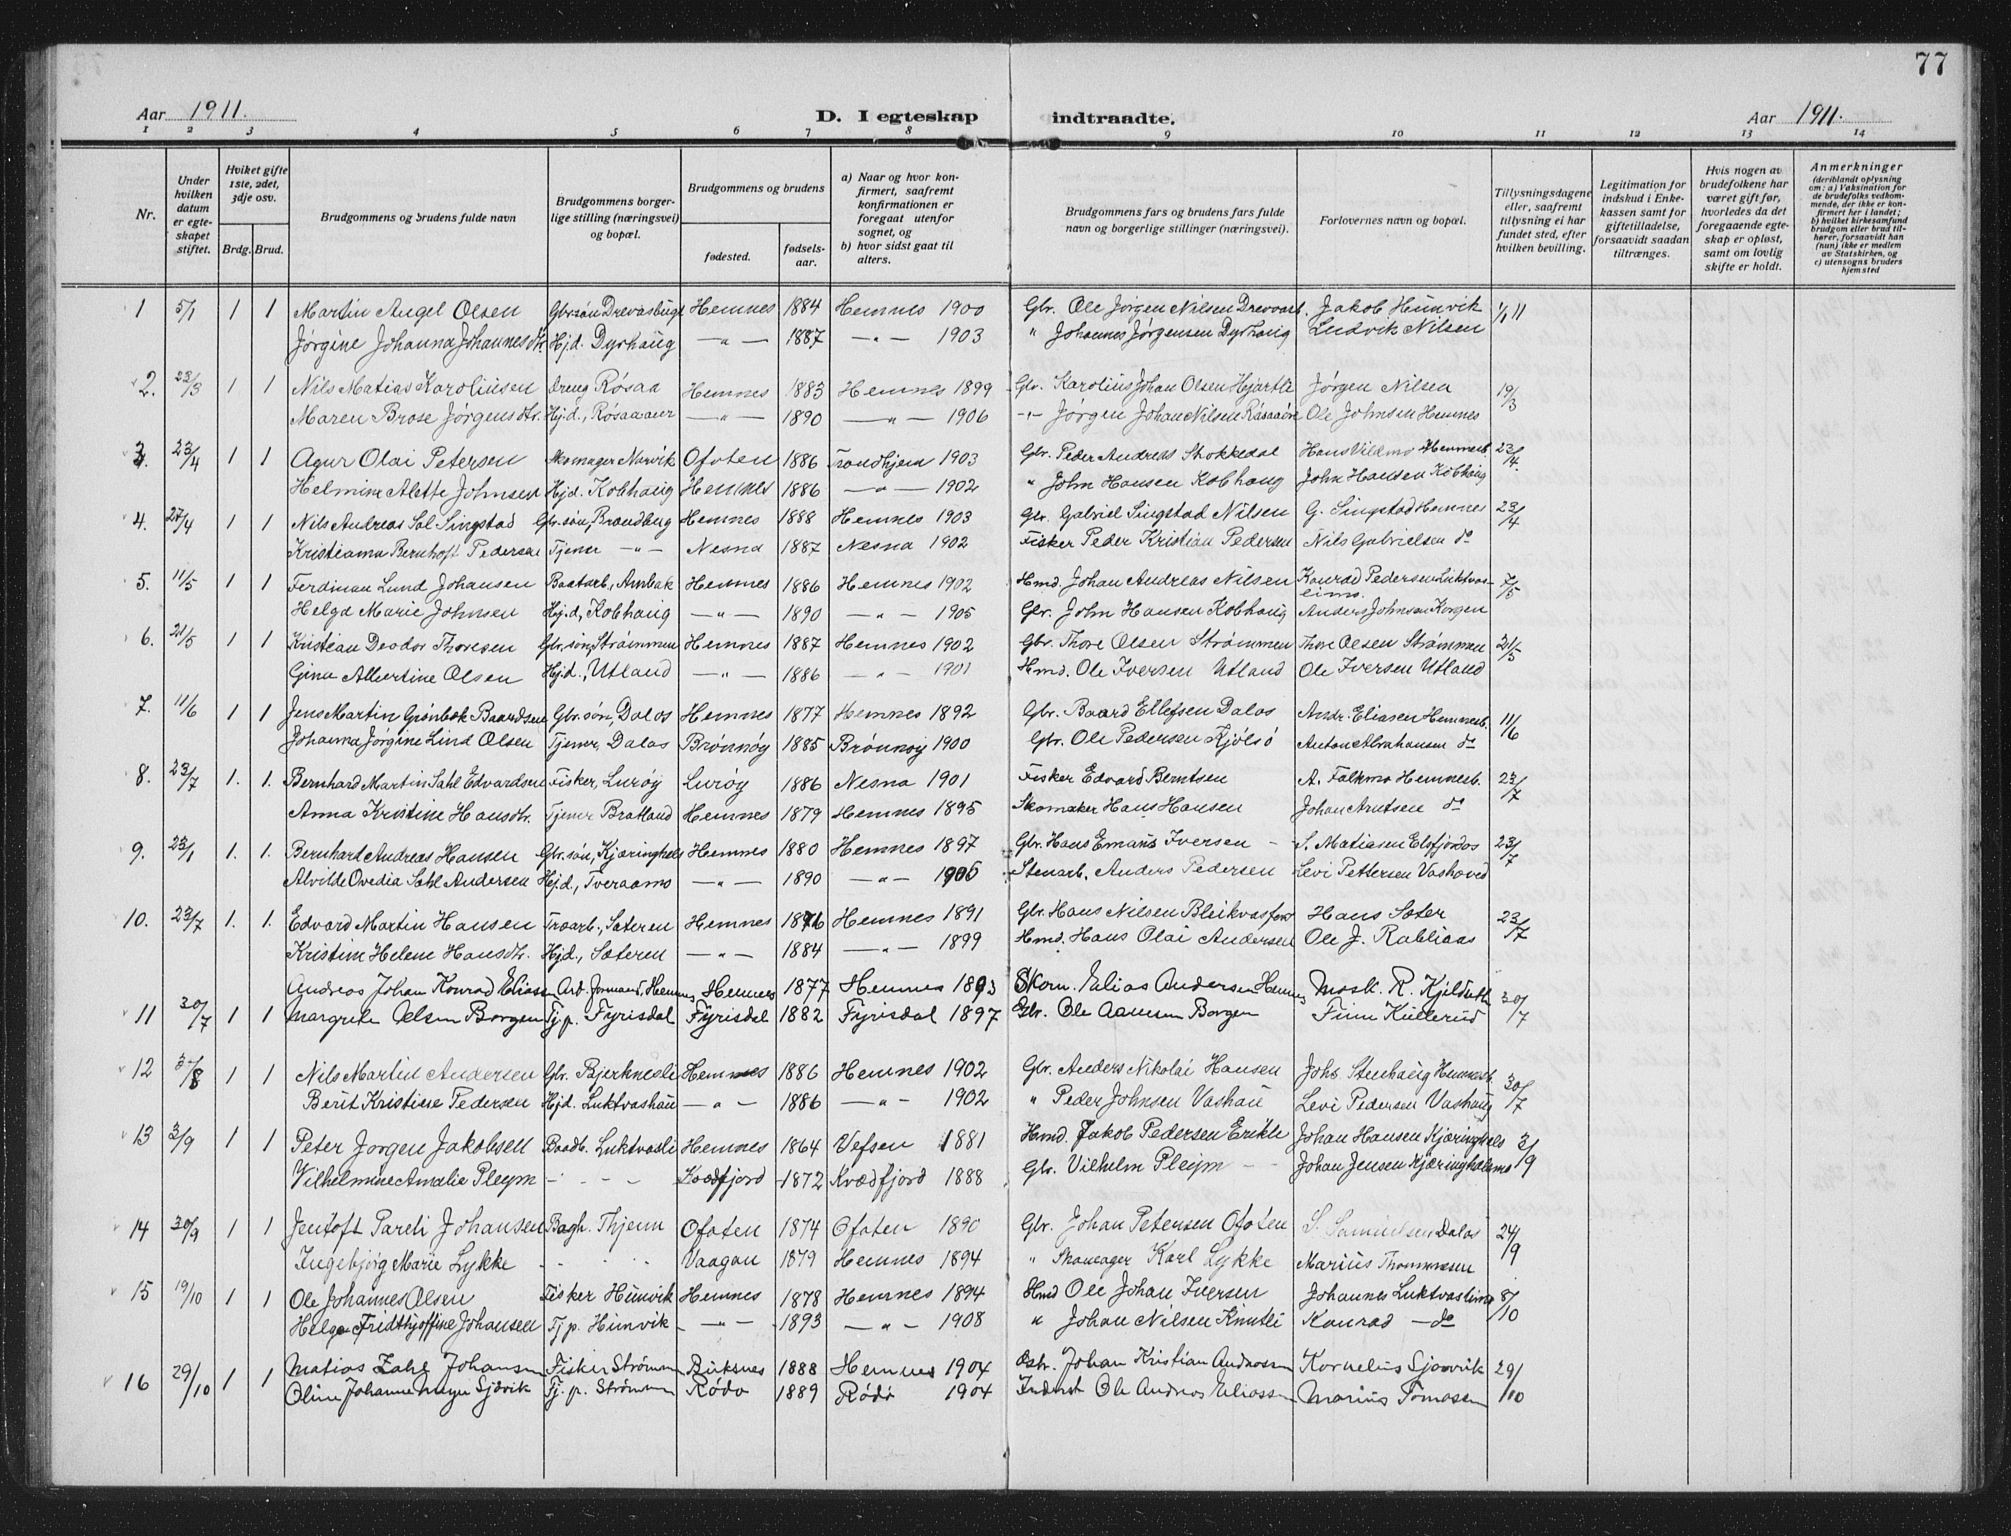 77
Aar 1911. D. I egteskap indtraadte. Aar 1911.
1 2 3 4 5 6 7 8 9 10 11 12 13 14
Nr.
Under hvilken datum er egteskapet stiftet.
Hviket gifte 1ste, 2det, 3dje osv.
Brdg. Brud.
Brudgommens og brudens fulde navn
Brudgommens borgerlige stilling (næringsvei) og bopæl.
Brudgommens og brudens
fødested.
fødselsaar.
a) Naar og hvor konfirmert, saafremt konfirmationen er foregaat utenfor sognet, og
b) hvor sidst gaat til alters.
Brudgommens fars og brudens fars fulde navn og borgerlige stillinger (næringsvei).
Forlovernes navn og bopæl.
Tillysningsdagene eller, saafremt tillysning ei har fundet sted, efter hvilken bevilling.
Legitimation for indskud i Enkekassen samt for giftetilladelse, forsaavidt saadan tiltrænges.
Hvis nogen av brudefolkene har været gift før, hvorledes da det foregaaende egteskap er opløst, samt om lovlig skifte er holdt.
Anmerkninger
(deriblandt oplysning om: a) Vaksination for de brudefolks vedkommende, der ikke er konfirmert her i landet; b) hvilket kirkesamfund brudgom eller brud tilhører, forsaavidt han (hun) ikke er medlem av Statskirken, og c) utensogns bruders hjemsted
1 5/1 1 1 Martin Angel Olsen Gbr.søn Drevasbugt Hemnes 1884 Hemnes 1900 Gbr. Ole Jørgen Nilsen Jakob Hunvik 1/1 11
Jørgine Johanna Johannesdtr. Hjd. Dyrhaug —"— 1887 —"— 1903 " Johannes Jørgensen Dyrhaug Ludvik Nilsen
2. 23/3 1 1 Nils Matias Karoliusen Dreng Røsaa Hemnes 1883 Hemnes 1899 Gbr. Karolius Johan Olsen Hjartli Jørgen Nilsen 19/3
Maren Brose Jørgensdtr. Hjd., Røsaaaur —"— 1890 —"— 1906 -"- Jørgen Johan Nilsen Ole Johnsen Hemnes
3. 23/4 1 1 Agur Olai Petersen Skomager Narvik Ofoten 1886 Trondhjem 1903 Gbr. Peder Andreas Stokkedal Hans Vildmo Hemnesb. 23/4.
Helmine Alette Johnsen Hjd. Kobhaug Hemnes 1886 —"— 1902 " John Hansen Kobhaug John Hansen Kobhaug
4. 27/4 1 1 Nils Andreas Sol Singstad Gbr.søn, Brandberg Hemnes 1888 Hemnes 1903 Gbr. Gabriel Singstad Nilsen G. Singstad Hemnes 23/4
Kristianna Bernhoft Pedersen Tjener —"— Nesna 1887 Nesna 1902 Fisker Peder Kristian Pedersen Nils Gabrielsen do
5. 11/5 1 1 Ferdinan Lund Johansen Baatarb., Ambak Hemnes 1886 Hemnes 1902 Hmd. Johan Andreas Nilsen Konrad Pedersen Luktvas- 7/5
leimo.
Helga Marie Johnsen Hjd., Kobhaug —"— 1890 —"— 1905 Gbr. John Hansen Kobhaug Anders Johnsen Korgen
6. 21/5 1 1 Kristian Deodor Thoresen Gbr.søn, Strømmen Hemnes 1887 Hemnes 1902 Gbr. Thore Olsen Strømmen Thore Olsen Strømmen 21/5
Gina Albertine Olsen Hjd., Utland —"— 1886 —"— 1901 Hmd. Ole Iversen Utland Ole Iversen Utland
7. 11/6 1 1 Jens Martin Grønbæk Baardsen Gbr.søn, Dalos Hemnes 1877 Hemnes 1892 Gbr. Baard Ellefsen Dalos Andr. Eliasen Hemnesb. 11/6
Johanna Jørgine Lind Olsen Tjener, Dalos Brønnøy 1885 Brønnøy 1900 Gbr. Ole Pedersen Kjølsø Anton Abrahansen do
8. 23/7 1. 1. Bernhard Martin Sahl Edvardsen Fisker, Lurøy Lurøy 1886 Nesna 1901 Fisker Edvard Berntsen A. Falkmo Hemnesb. 23/7
Anna Kristine Hansdtr. Tjener Bratland Hemnes 1879 Hemnes 1895 Skomaker Hans Hansen Johan Arntsen do
9. 23/1 1. 1. Bernhart Andreas Hansen Gbr.søn, Kjæringhels Hemnes 1880 Hemnes 1897 Gbr. Hans Emans Iversen - S. Matiasen Elsfjordos 23/7
Alvilde Ovedia Sahl Andersen Hjd., Tveraamo —"— 1890 —"— 1906 Stenarb. Anders Pedersen Levi Pettersen Vashoved
10. 23/7 1. 1. Edvard Martin Hansen Troarb., Sæteren Hemnes 1876 Hemnes 1891 Gbr. Hans Nilsen Bleikvasfors Hans Sæter 23/7
Kristine Helene Hansdtr. Hjd., Sæteren —"— 1884 —"— 1899 Hmd. Hans Olai Andersen Ole J. Rabliaas
11 30/7 1 1 Andreas Johan Konrad Eliassen Arb.formand, Hemnes Hemnes 1877 Hemnes 1893 Skom. Elias Andersen Hemnes Mosk. R. Kjildseth 30/7
Margrete Aelsen Borgen Tj.p. Fyrisdal Fyrisdal 1882 Fyrisdal 1897 Gbr. Ole Aamsen Borgen Finn Kullerud
12 1 1 Nils Martin Andersen Gbr. Bjerknesli Hemnes 1886 Hemnes 1902 Gbr. Anders Nikolai Hansen Johs. Stenhaug Hemnesb. 30/7
Berit Kristine Pedersen Hjd. Luktvashau —"— 1886 —"— 1902 " Peder Johnsen Vashau Levi Pedersen Vashaug
13 3/9 1 1 Peter Jørgen Jakobsen Baadb. Luktvasli Hemnes 1864 Vefsen 1881 Hmd. Jakob Pedersen Erikle Johan Hansen Kjæringhels 3/9
Vilhelmine Amalie Pleym - - - - Kvædfjord 1872 Kvædfjord 1888 Gbr. Vilhelm Pleym - - Johan Jensen Kjæringhelsmo
14 30/9 1 1 Jentoft Pareli Johansen Bagh. Thjenn Ofoten 1874 Ofoten 1890 Gbr. Johan Petersen Ofoten S. Samuelsen Dalos 24/9
Ingebjørg Marie Lykke - - - Vaagan 1879 Hemnes 1894 " Skomager Karl Lykke Marius Thommesen
15 19/10 1 1 Ole Johannes Olsen Fisker Hunvik Hemnes 1878 Hemnes 1894 Hmd Ole Johan Iversen Johannes Luktvaslimo 8/10
Helga Fridthjoffine Johansen Tj p. Hunvik —"— 1893 —"— 1908 " Johan Nilsen Knutli Konrad — do
16 29/10 1 1 Matias Zahl Johansen Fisker Strømmen Buksnes 1888 Hemnes 1904 Johan Kristian Andreassen Kornelius Sjøvik 29/10
Oline Johanne Meyer Sjøvik Tj.p. Strømmen Rødø 1889 Rødø 1904 Inderst Ole Andreas Eliassen Marius Tomassen